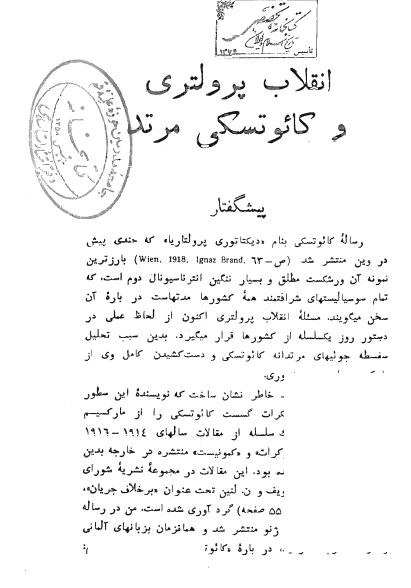 کتابخانه تخصصی
تاریخ اسلام و ایران
تأسیس ۱۳۷۴
کتابخانه
انقلاب پرولتری
و کائوتسکی مرتد
پیشگفتار
رسالهٔ کائوتسکی بنام «دیکتاتوری پرولتاریا» که چندی پیش
در وین منتشر شد (ص-۶۳ ,Wien, 1918, Ignaz Brand) بارزترین
نمونه آن ورشکست مطلق و بسیار ننگین انترناسیونال دوم است، که
تمام سوسیالیستهای شرافتمند همهٔ کشورها مدتهاست در بارهٔ آن
سخن میگویند. مسئلهٔ انقلاب پرولتری اکنون از لحاظ عملی در
دستور روز یکسلسله از کشورها قرار میگیرد. بدین سبب تحلیل
سفسطه جوئیهای مرتدانه کائوتسکی و دست‌کشیدن کامل وی از
وری.
خاطر نشان ساخت که نویسندهٔ این سطور
کرات گسست کائوتسکی را از مارکسیسم
سلسله از مقالات سالهای ۱۹۱۴-۱۹۱۶
کرات» و «کمونیست» منتشره در خارجه بدین
ه بود. این مقالات در مجموعهٔ نشریهٔ شورای
ویف و ن. لنین تحت عنوان «برخلاف جریان»،
۵۵ صفحه) گرد آوری شده است. من در رساله
ژنو منتشر شد و همانزمان بزبانهای آلمانی
در بارهٔ «کائو